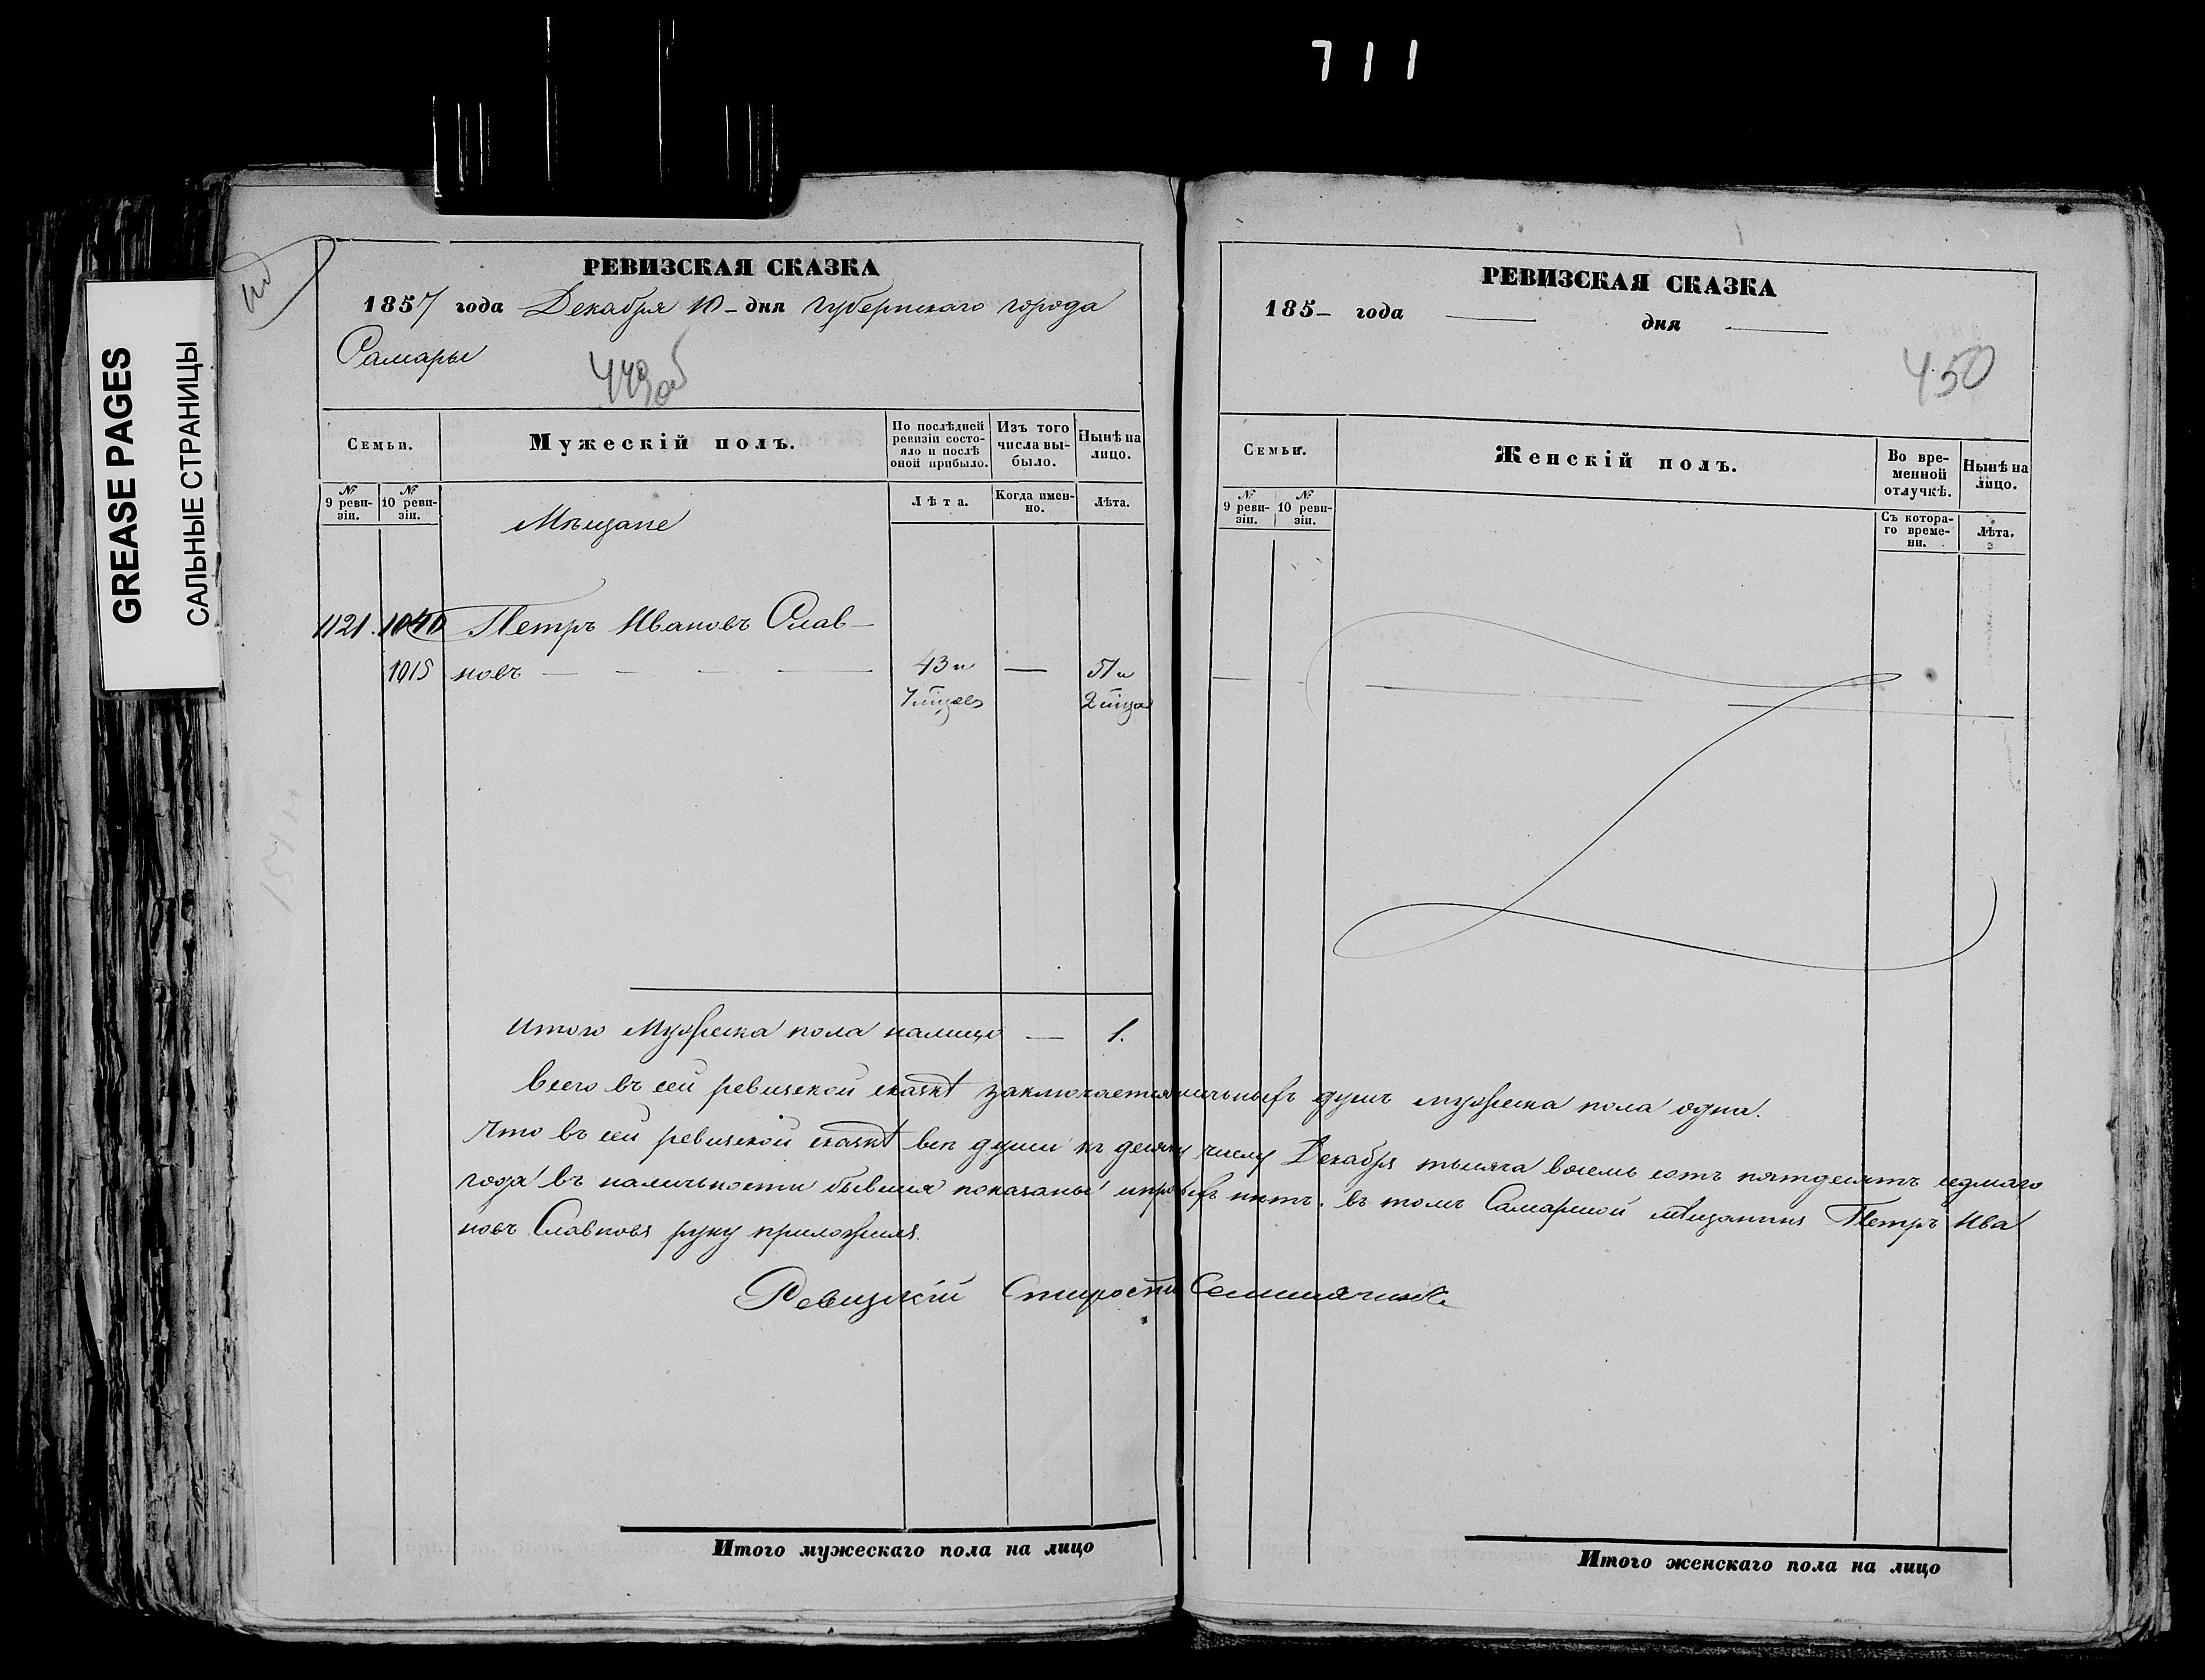 711
GREASE PAGES
САЛЬНЫЕ СТРАНИЦЫ
РЕВИЗСКАЯ СКАЗКА
1857 года Декабря 10 – дня Губернскаго города
Самары
449об
Семьи.
Мужескій полъ.
По послѣдней ревизіи состояло и послѣ оной прибыло.
Изъ того числа выбыло.
Нынѣ на лицо.
№ 9 ревизіи.
№ 10 ревизіи.
Мѣщане
Лѣта.
Когда именно.
Лѣта.
1121. 1040 Петръ Ивановъ Слав–
1015 новъ — 43 и — 51 и
7 мѣцсев 2 мѣца
Итого Мужеска пола налицо — 1.
Всего въ сей ревизской сказкѣ заключается наличныхъ душъ мужеска пола одна.
Что въ сей ревизской сказкѣ все души къ десяту числу Декабря тысяча восемь сотъ пятдесятъ седмаго
года въ наличности бывшия показаны и нѣтъ. въ томъ Самарской мѣщанинъ Петръ Ива
новъ Славновъ руку приложилъ.
Ревизскій Староста
Итого мужескаго пола на лицо
РЕВИЗСКАЯ СКАЗКА
185– года — дня —
450
Семьи.
Женскій полъ.
Во временной отлучкѣ.
Нынѣ на лицо.
№ 9 ревизіи.
№ 10 ревизіи.
Съ котораго времени.
Лѣта.
Итого женскаго пола на лицо